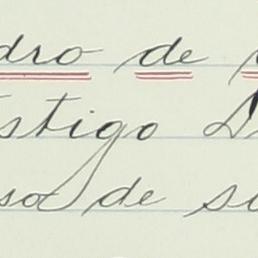 dro de
stigo D
sa de s